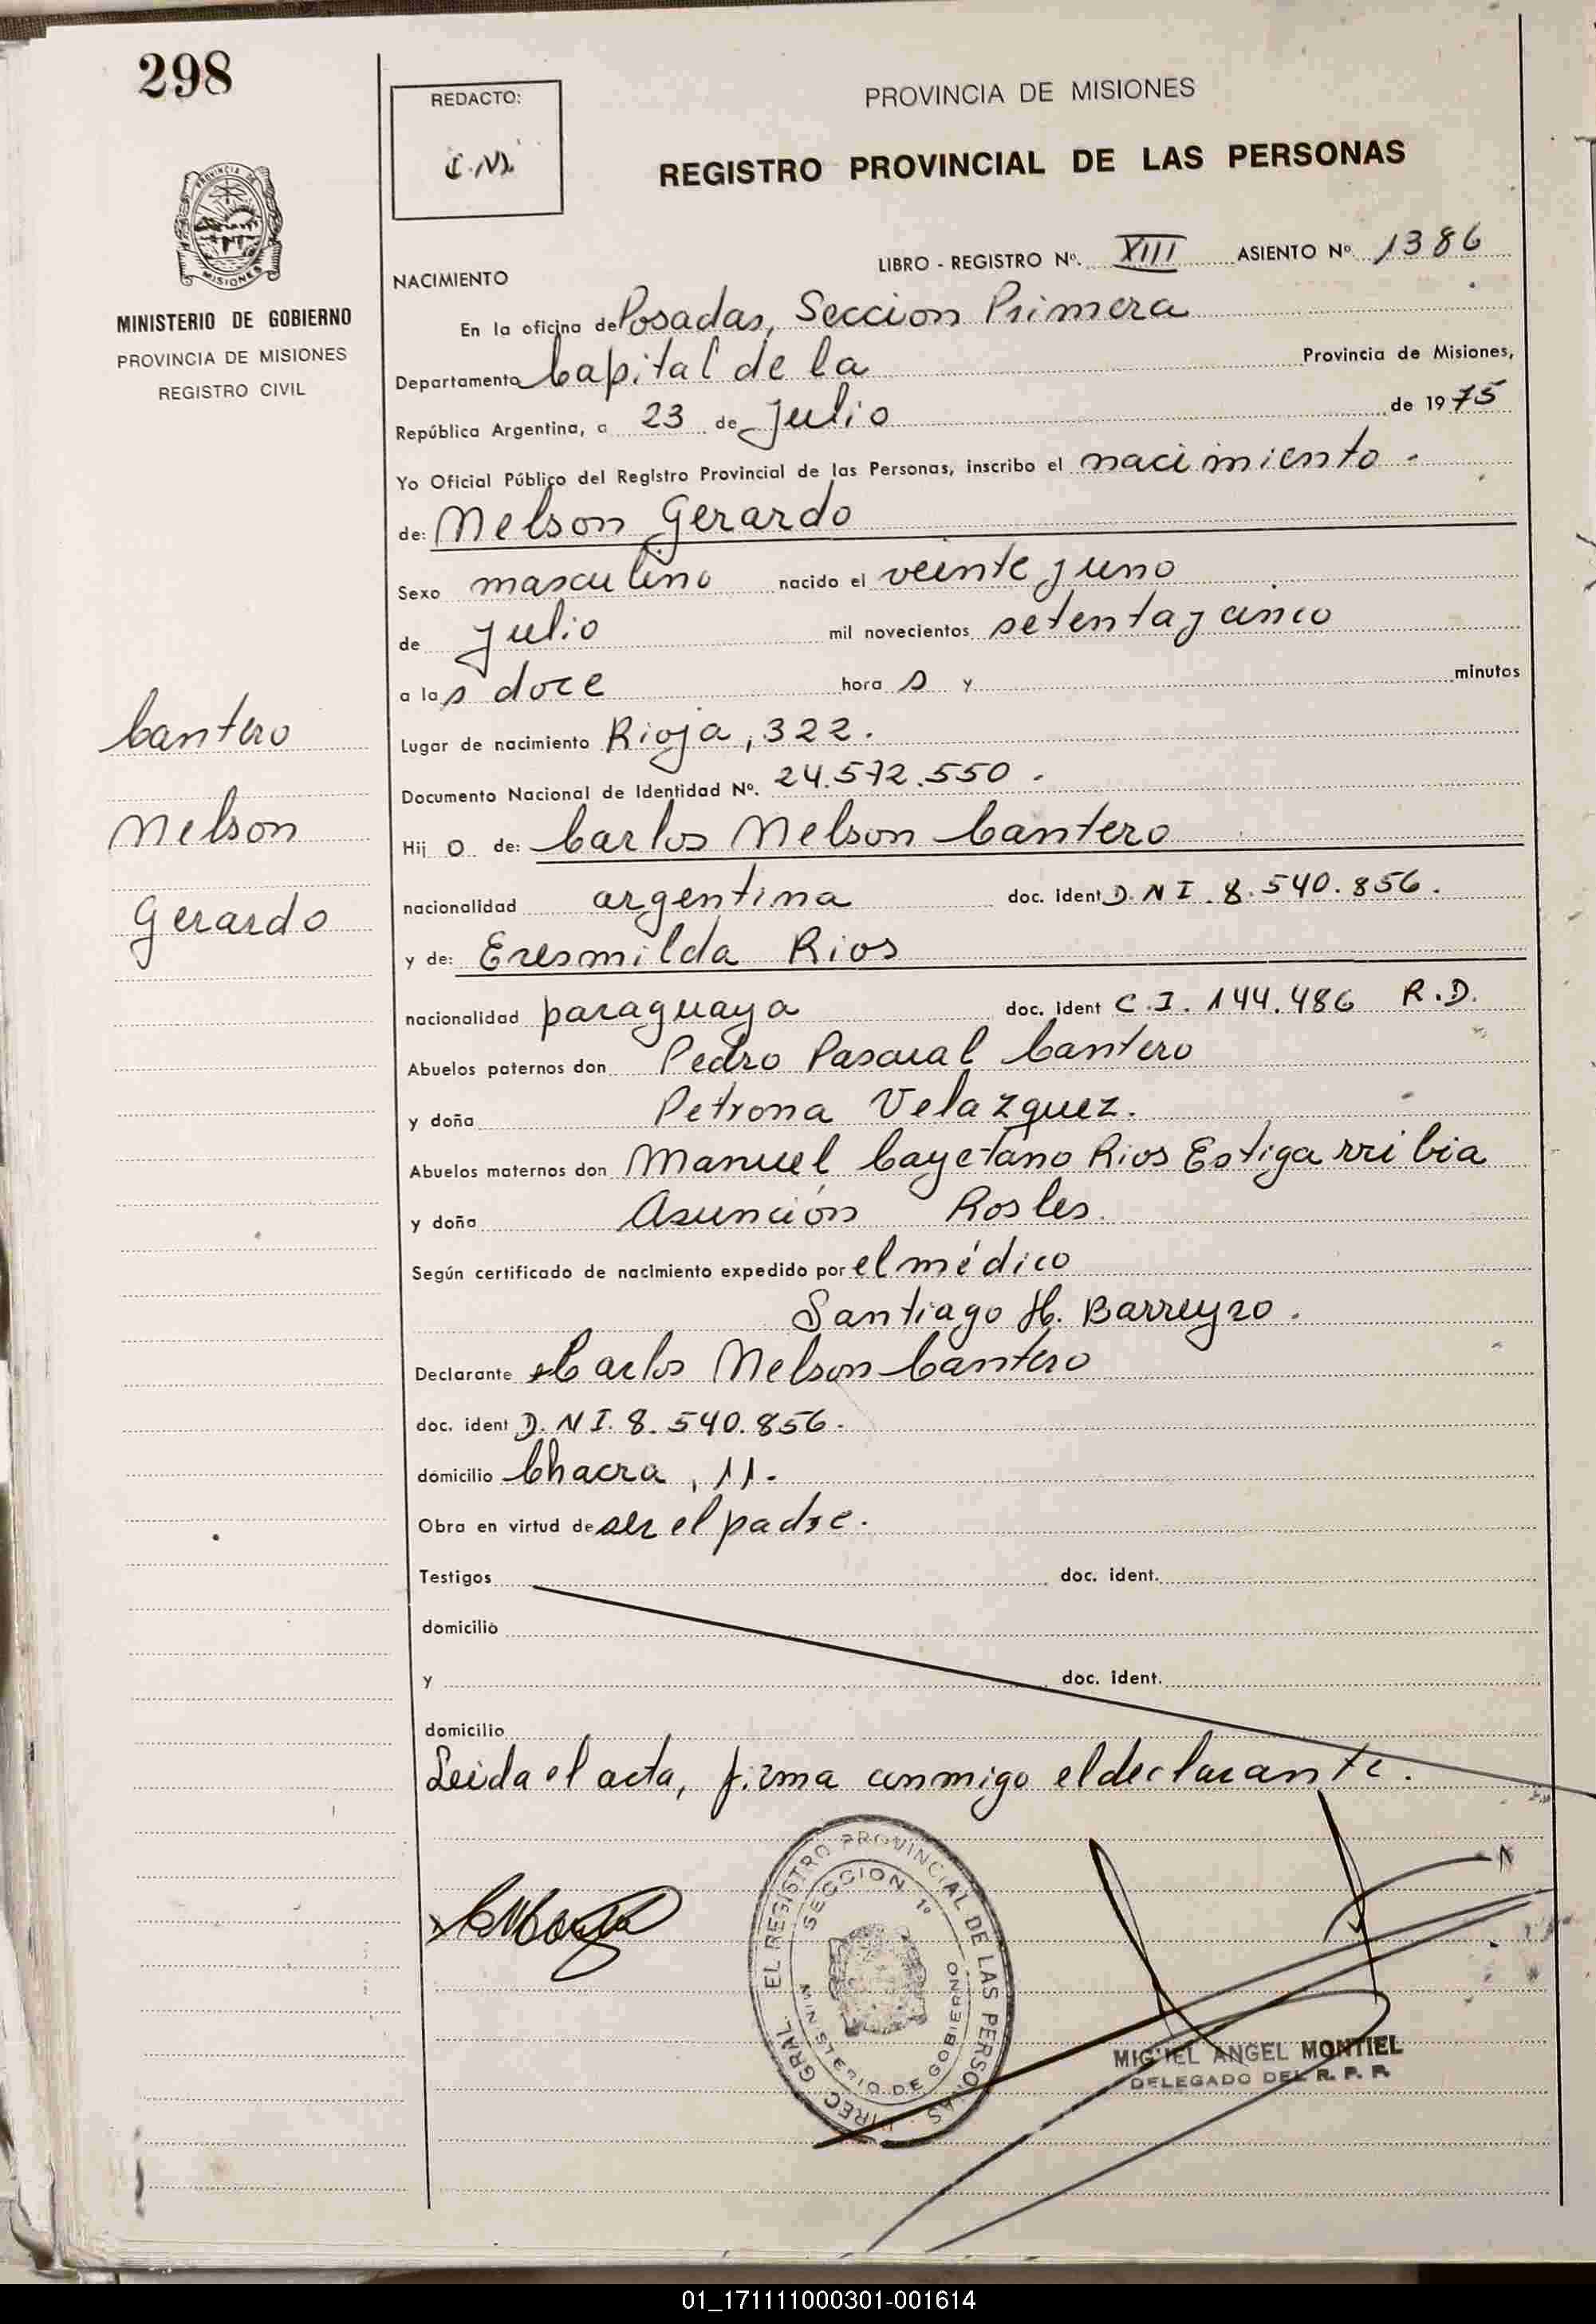 298
REDACTO:
C.N.
PROVINCIA DE MISIONES
REGISTRO PROVINCIAL DE LAS PERSONAS
LIBRO - REGISTRO Nº. XIII ASIENTO Nº 1386
MINISTERIO DE GOBIERNO
PROVINCIA DE MISIONES
REGISTRO CIVIL
NACIMIENTO
En la oficina de Posadas, Seccion Primera
Departamento Capital de la Provincia de Misiones,
República Argentina, a 23 de Julio de 1975
Yo Oficial Público del Registro Provincial de las Personas, inscribo el nacimiento.
de: Nelson Gerardo
Sexo masculino nacido el veinte y uno
de Julio mil novecientos setenta y cinco
a las doce horas y minutos
Cantero
Nelson
Gerardo
Lugar de nacimiento Rioja, 322.
Documento Nacional de Identidad Nº. 24.572.550.
Hijo de: Carlos Nelson Cantero
nacionalidad argentina doc. ident D.N I. 8.540.856.
y de: Eresmilda Rios
nacionalidad paraguaya doc. ident C.I. 144.486 R.D.
Abuelos paternos don Pedro Pascual Cantero
y doña Petrona Velazquez.
Abuelos maternos don Manuel Cayetano Rios Estigarribia
y doña Asunción Rosles.
Según certificado de nacimiento expedido por el médico
Santiago H. Barreyro.
Declarante Carlos Nelson Cantero
doc. ident D. N I. 8.540.856.
domicilio Chacra, 11.
Obra en virtud de ser el padre.
Testigos doc. ident.
domicilio
y doc. ident.
domicilio
Leida el acta, firma conmigo el declarante.
DIREC GRAL EL REGISTRO PROVINCIAL DE LAS PERSONAS
SECCION 1º
MINISTERIO DE GOBIERNO
MIGUEL ANGEL MONTIEL
DELEGADO DEL R. P. P.
01_171111000301-001614